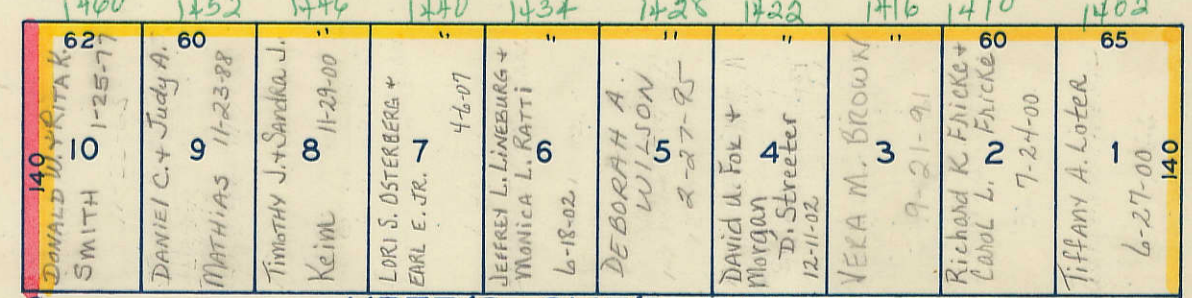 1460 1452 1446 1440 1434 1428 1422 1416 1410 1402
62 60 " " " " " " 60 65
140 10 9 8 7 6 5 4 3 2 1 140
DONALD W. & RITA K.
SMITH 1-25-77
DANIEL C. & Judy A.
MATHIAS 11-23-88
TIMOTHY J. & Sandra J.
Keim 11-29-00
LORI S. OSTERBERG &
EARL E. JR.
4-6-07
JEFFREY L. LINEBURG &
MONICA L. RATTI
6-18-02
DEBORAH A.
WILSON
2-27-95
DAVID U. Fox &
Morgan
D. Streeter
12-11-02
VERA M. BROWN
9-21-91
Richard K Fricke &
Carol L. Fricke
7-24-00
Tiffany A. Loter
6-27-00